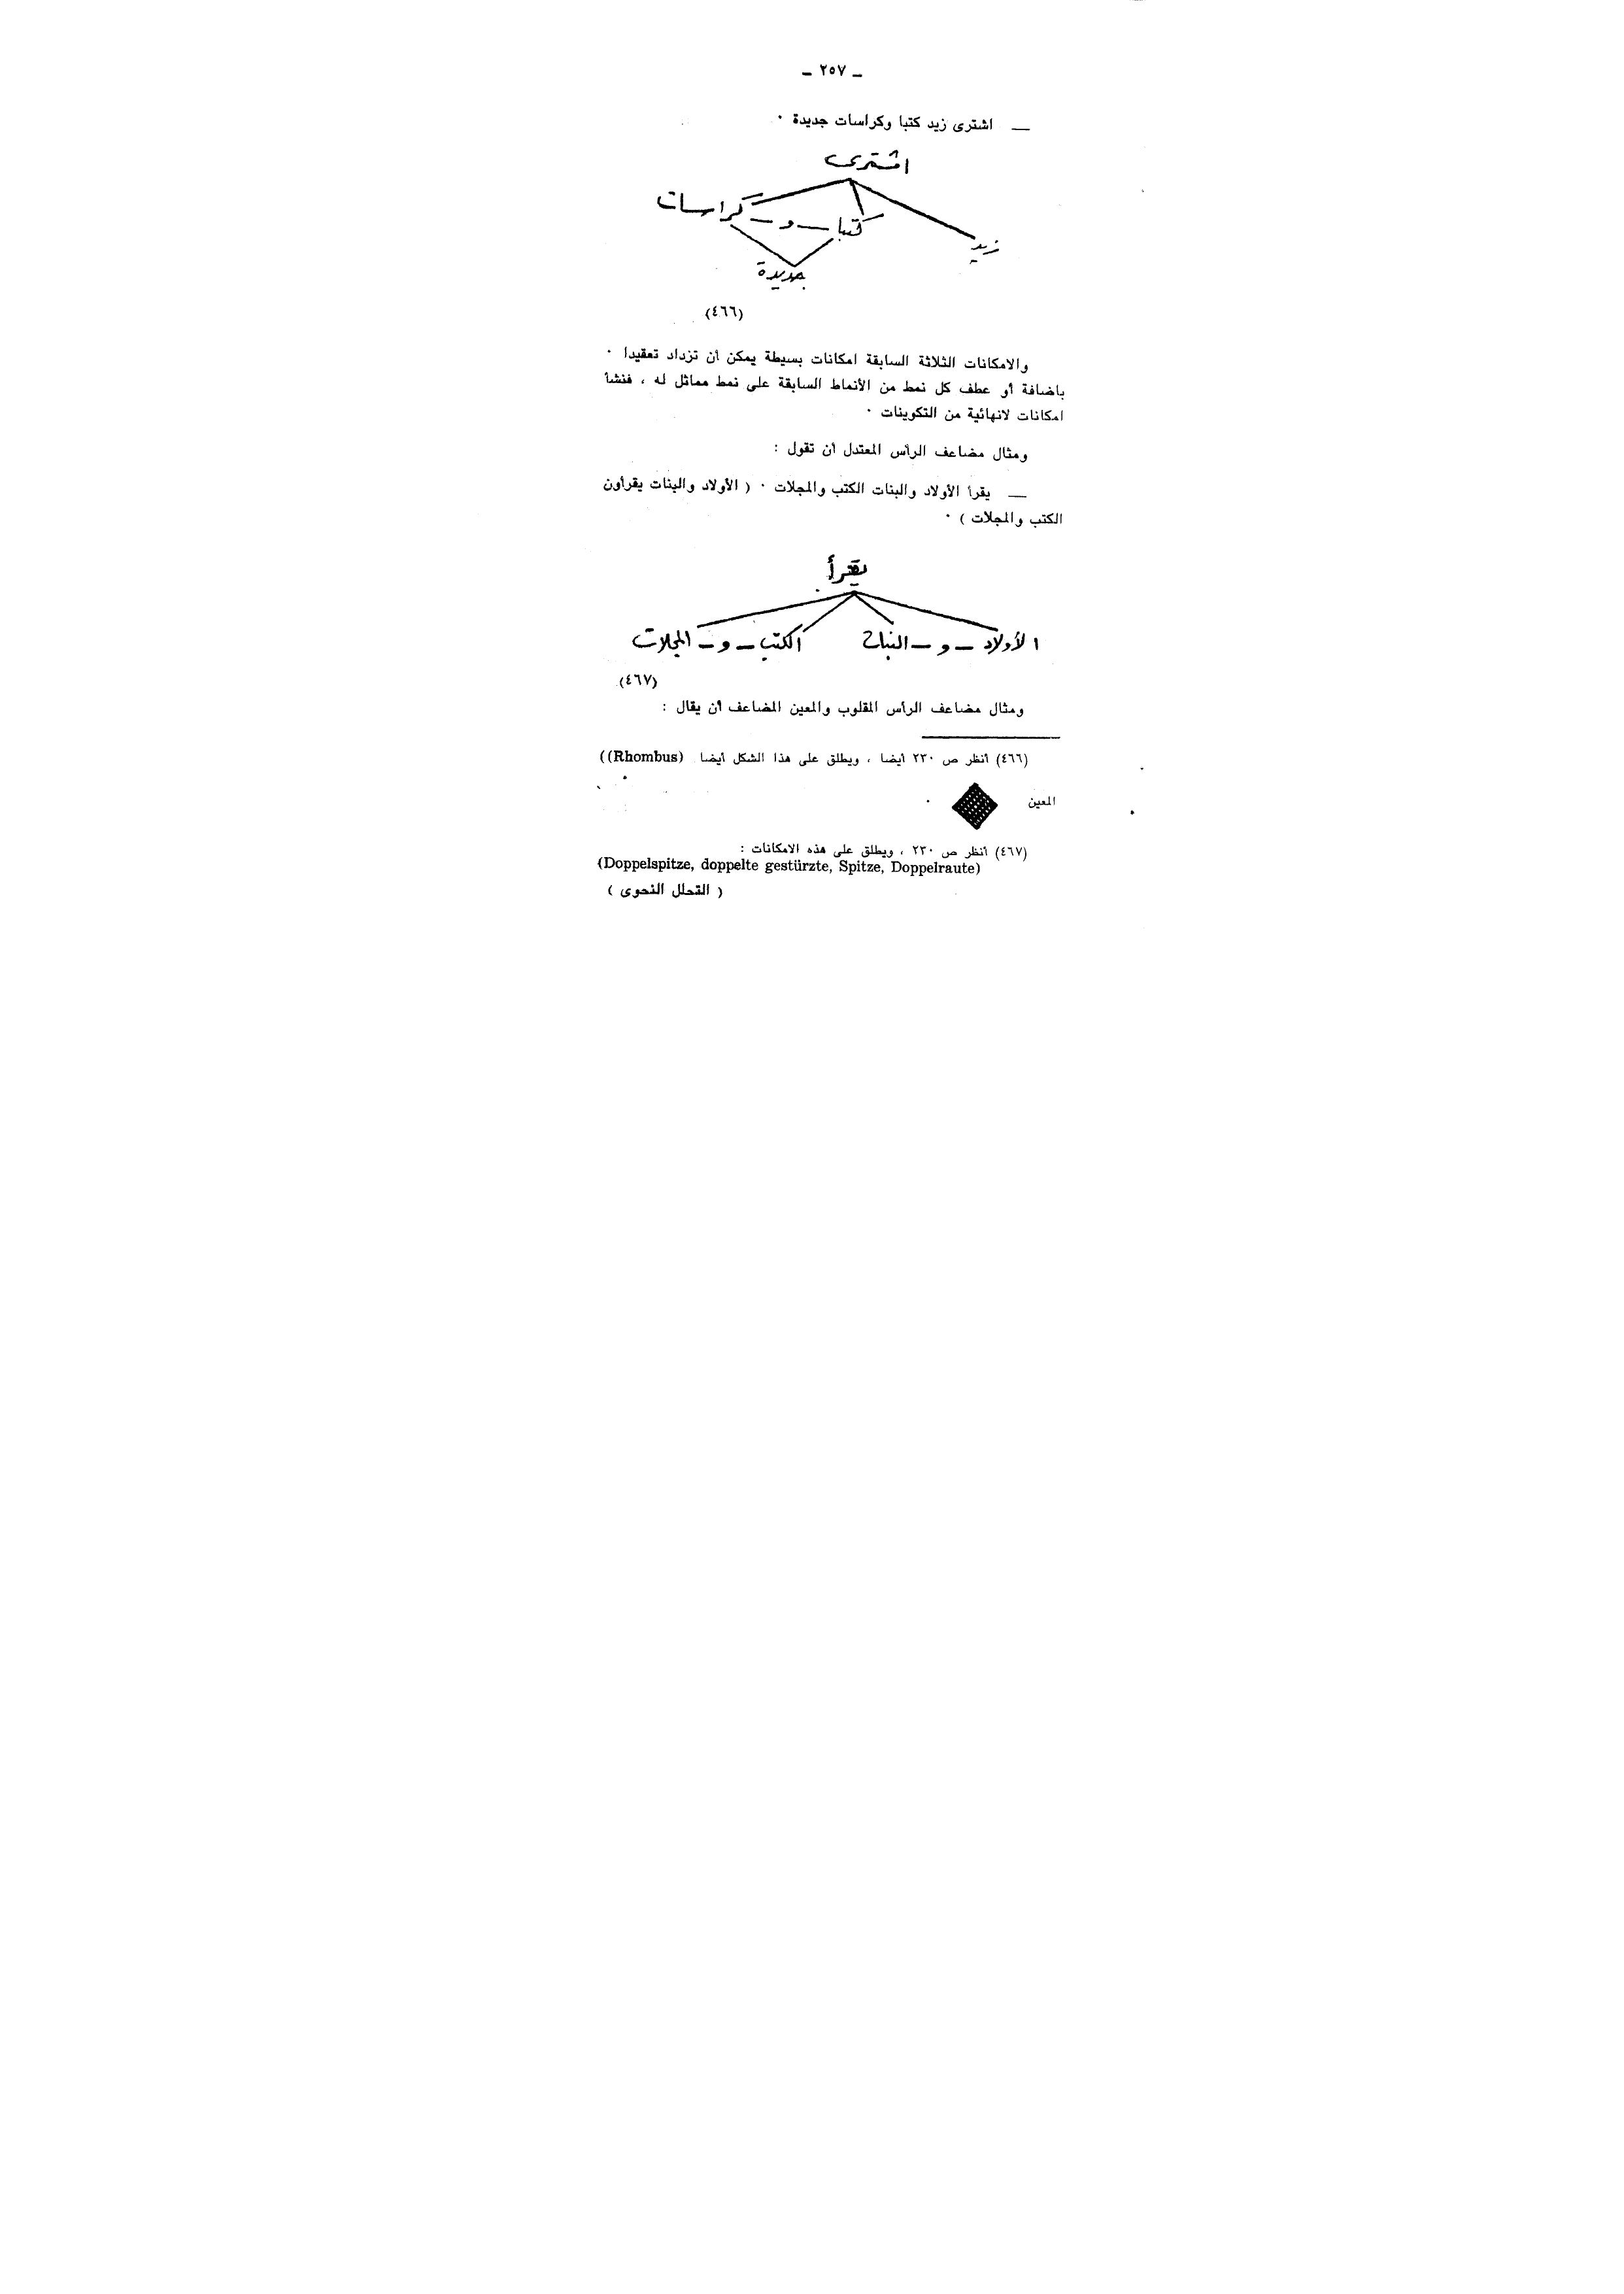 ـ ٢٥٧ ـ
ــ اشترى زيد كتبا وكراسات جديدة ٠
اشترى
كتبا ــ و ــ كراسات
زيد
جديدة
(٤٦٦)
والامكانات الثلاثة السابقة امكانات بسيطة يمكن أن تزداد تعقيدا ٠
باضافة أو عطف كل نمط من الأنماط السابقة على نمط مماثل له ، فنشأ
امكانات لانهائية من التكوينات ٠
ومثال مضاعف الرأس المعتدل أن تقول :
ــ يقرأ الأولاد والبنات الكتب والمجلات ٠ ( الأولاد والبنات يقرأون
الكتب والمجلات ) ٠
يقرأ
الأولاد ــ و ــ البنات الكتب ــ و ــ المجلات
(٤٦٧)
ومثال مضاعف الرأس المقلوب والمعين المضاعف أن يقال :
(٤٦٦) أنظر ص ٢٣٠ أيضا ، ويطلق على هذا الشكل أيضا (Rhombus))
المعين ٠
(٤٦٧) أنظر ص ٢٣٠ ، ويطلق على هذه الامكانات :
(Doppelspitze, doppelte gestürzte, Spitze, Doppelraute)
( التحلل النحوى )